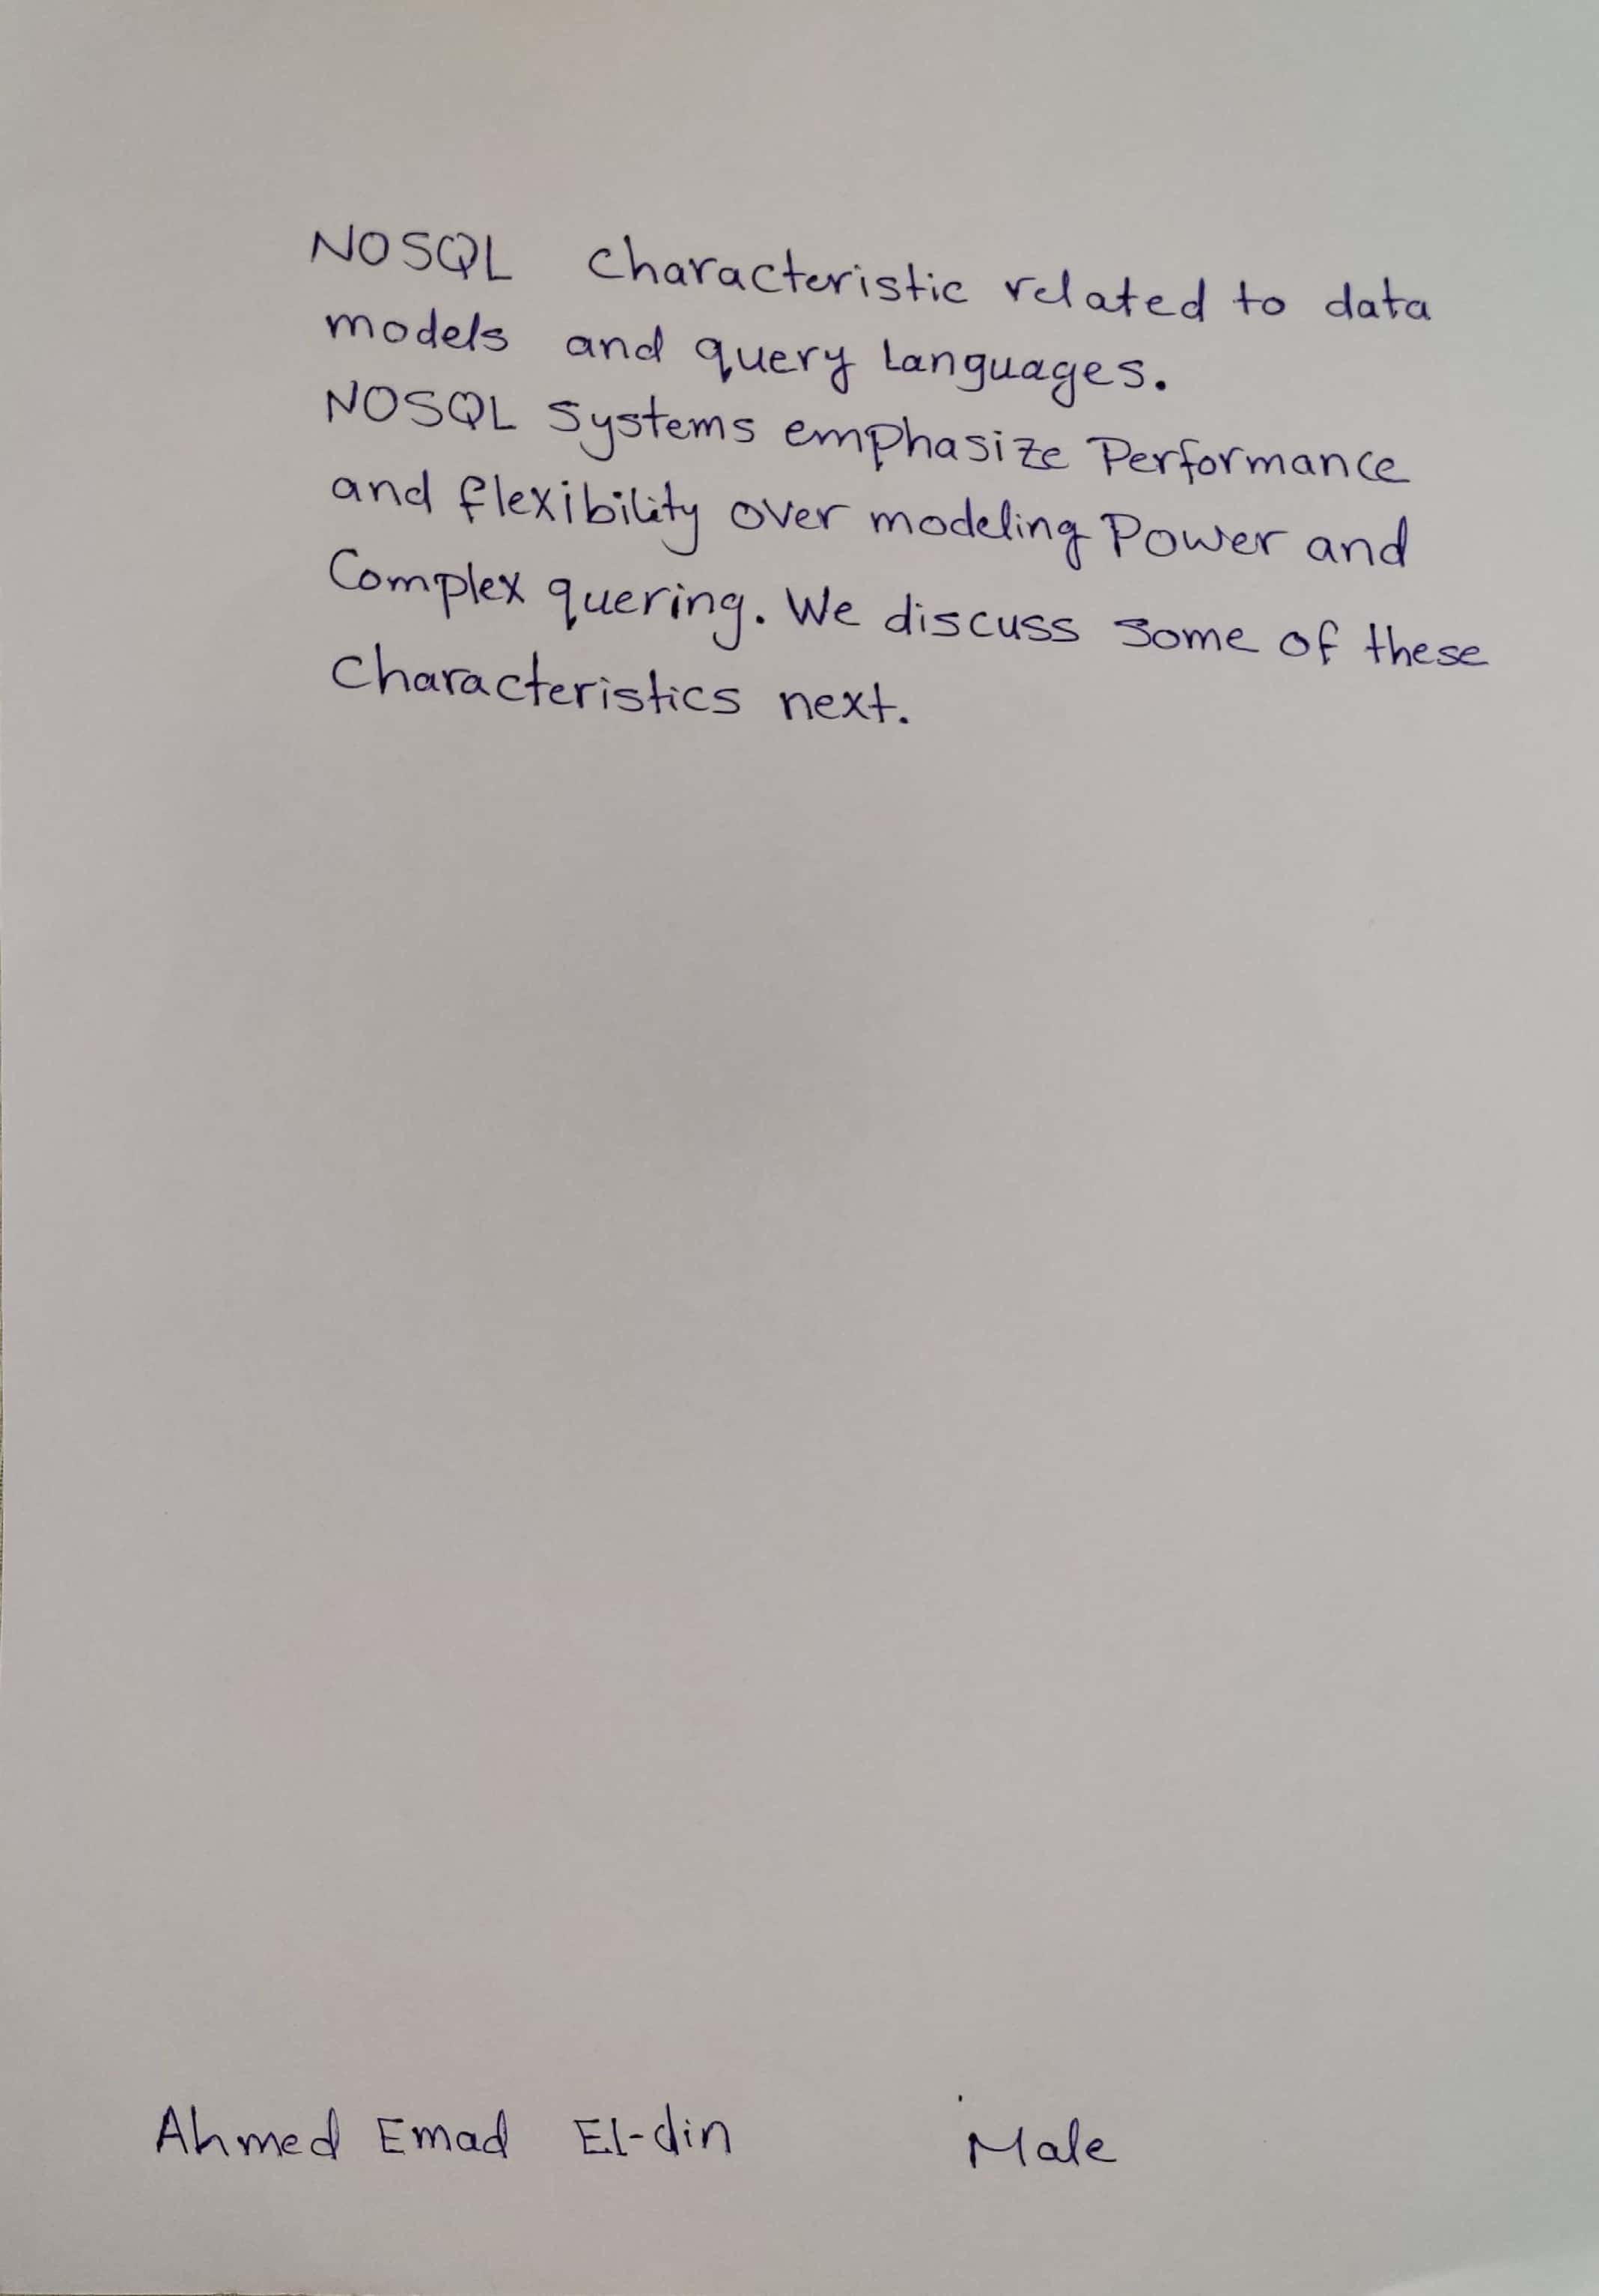 NOSQL Characteristic related to data
models and query Languages.
NOSQL Systems emphasize Performance
and flexibility over modeling Power and
Complex quering. We discuss some of these
Characteristics next.
Ahmed Emad El-din Male